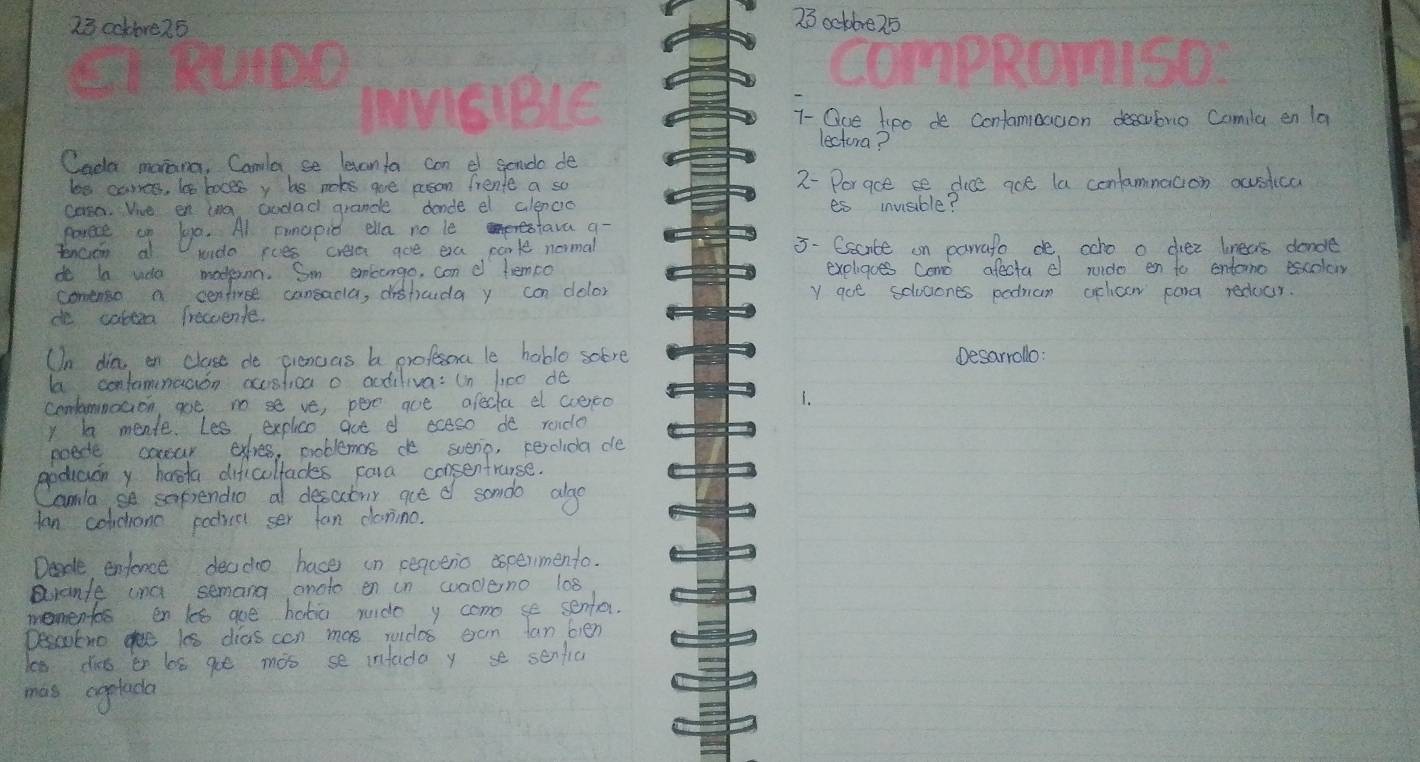 23 octobre 25
El RUIDO
INVISIBLE
Cada mañana, Camila se levanta con el sonido de
los carros, los boces y las motos que pasan frente a so
casa. Vive en una ciudad grande donde el cilencio
parece un lujo. Al principio ella no le prestava a-
tencion al ruido pues creia que era parte normal
de la vida moderna. Sin embango, con el tiempo
comenso a centirse cansada, distraida y con dolor
de cabeza frecuente.
Un dia, en clase de ciencias la profesora le hablo sobre
la contaminación acustica o auditiva: Un tipo de
contaminación que no se ve, pero que afecta el cuerpo
y la mente. Les explico que el eceso de ruido
puede causar extres, problemas de sueño, perdida de
audición y hasta dificultades para consentrarse.
Camila se soprendio al descubrir que el sonido algo
tan cotidiano podria ser tan dañino.
Desde entonce decidio hacer un pequeño esperimento.
Durante una semana anoto en un cuaderno los
momentos en los que habia ruido y como se sentia.
Descubrio que los dias con mas ruidos eran tan bien
los dias en los que mas se infada y se sentia
mas agotada
23 octobre 25
COMPROMISO:
1- Que tipo de contaminacion descubrio Camila en la
lectura?
2- Por que se dice que la contaminacion acustica
es invisible?
3- Escribe un parrafo de ocho o diez lineas donde
expliques como afecta el ruido en tu entorno escolar
y que soluciones podrian aplicar para reducir.
Desarrollo:
1.